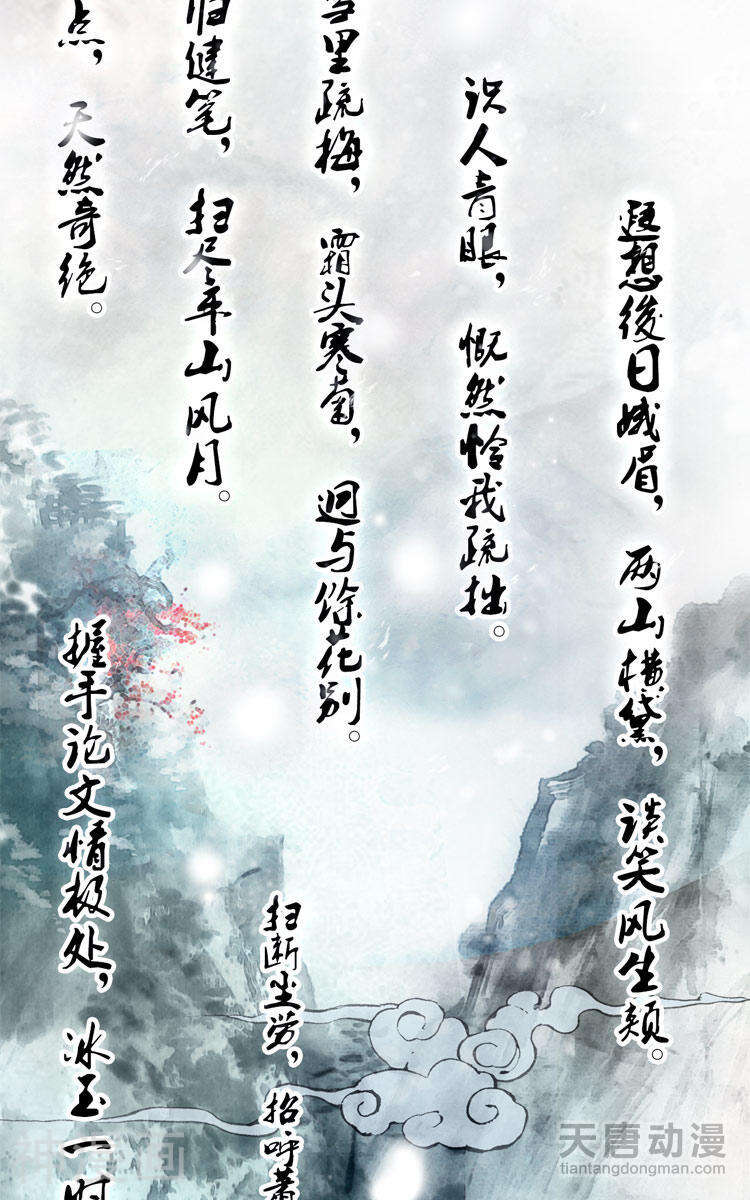 遥想後日娥眉，两山横黛，谈笑风生颊。
识人青眼，慨然怜我疏拙。
雪里疏梅，霜头寒菊，迥与馀花别。
归健笔，扫尽平山风月。
点，天然奇绝。
握手论文情极处，冰玉一时
扫断尘劳，招呼萧
天唐动漫
tiantangdongman.com